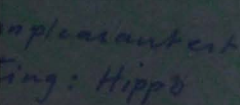 unpleasantest
ting: Hippo